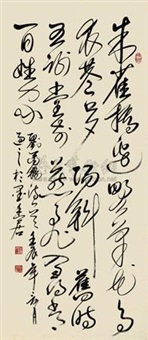 朱雀橋邊野草花烏
衣巷口夕陽斜舊時
王謝堂前燕飛入尋常
百姓家
劉禹錫詩
壬辰年